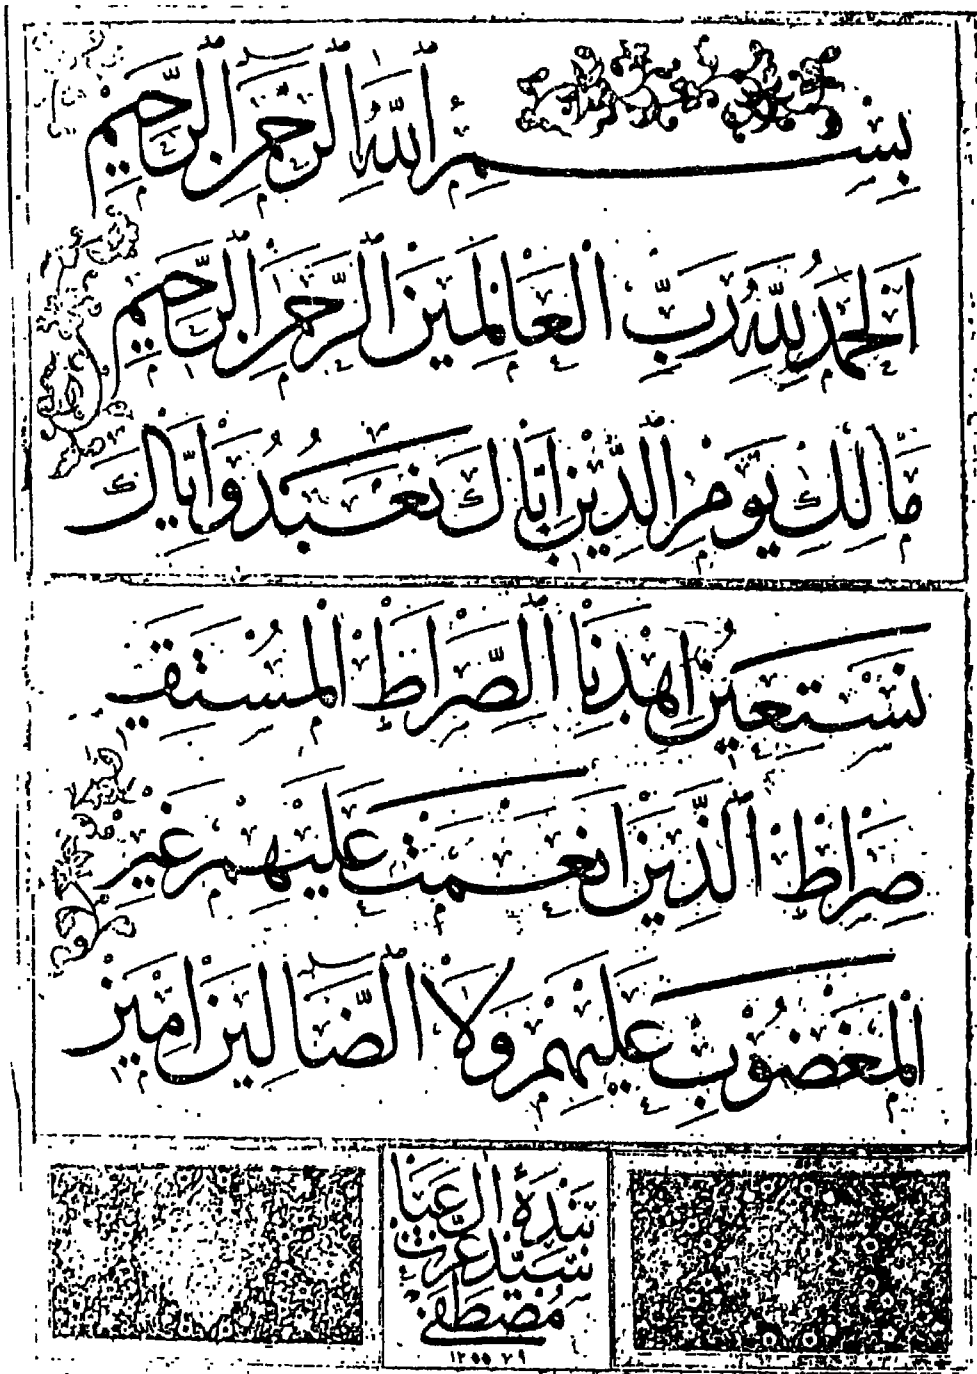 بسم الله الرحمن الرحيم
الحمد لله رب العالمين الرحمن الرحيم
مالك يوم الدين اياك نعبد واياك
نستعين اهدنا الصراط المستقيم
صراط الذين انعمت عليهم غير
المغضوب عليهم ولا الضالين امين
بندۀ آل عبا
سيد عزت
مصطفى